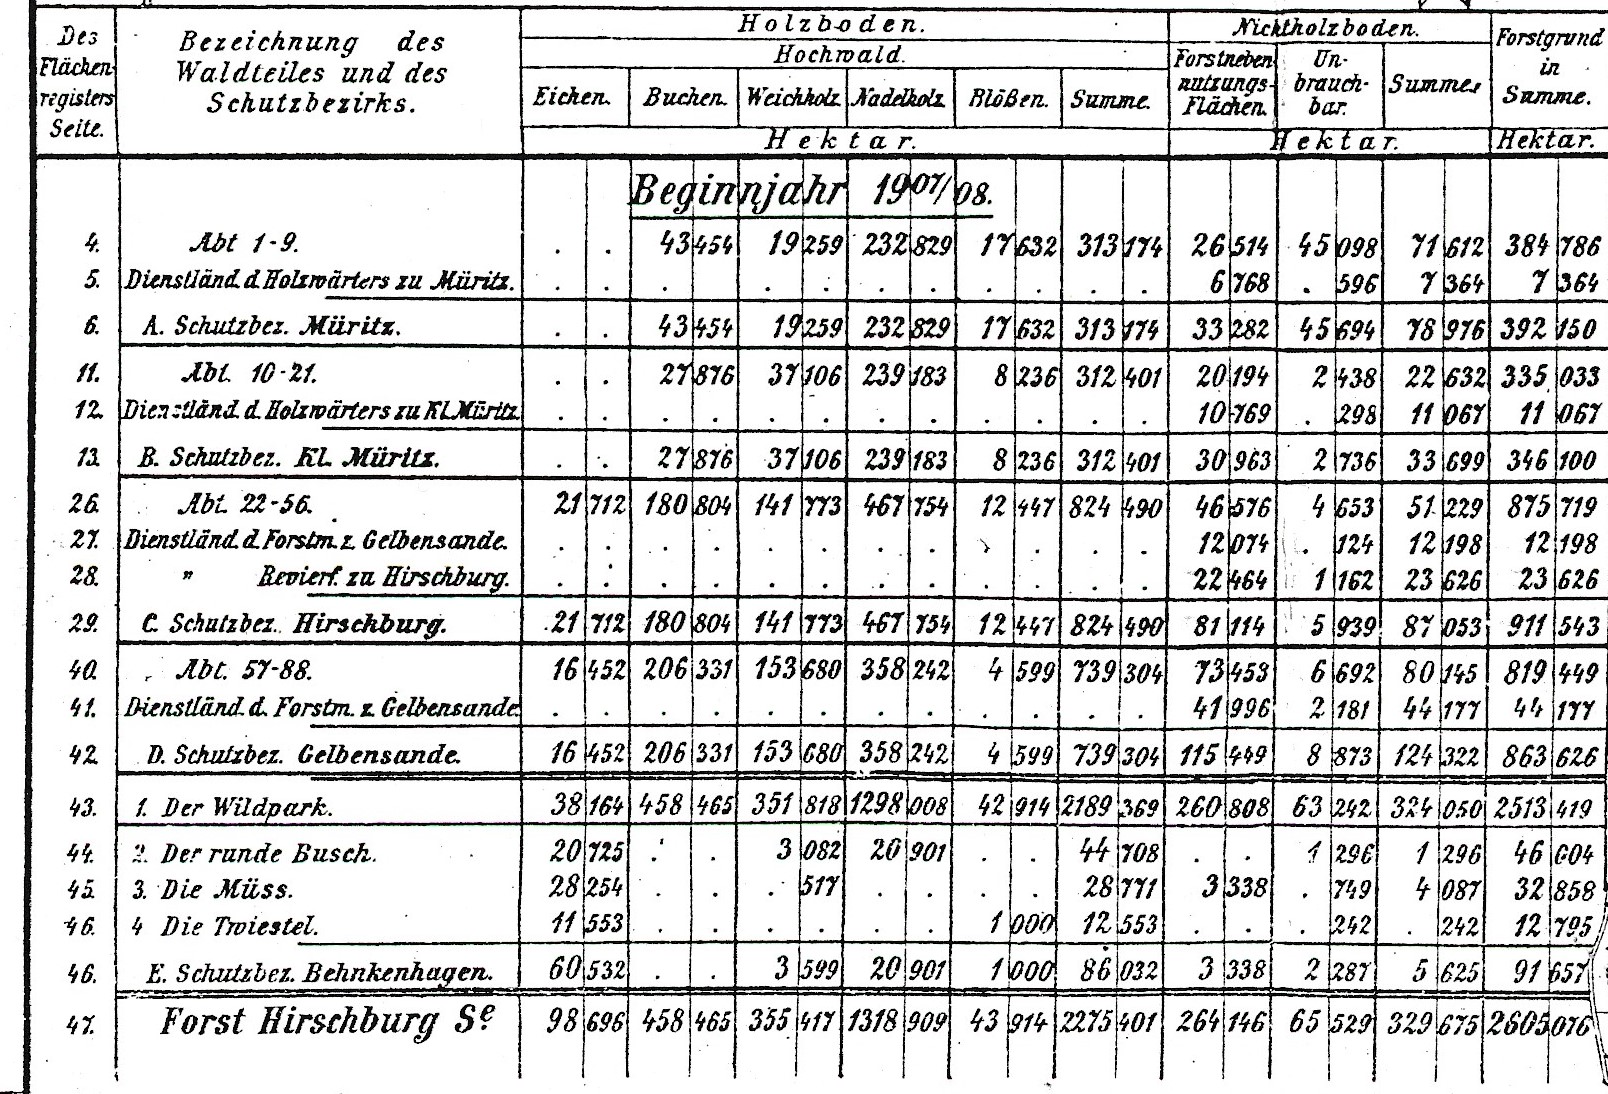 Des Flächenregisters Seite. | Bezeichnung des Waldteiles und des Schutzbezirks. | Holzboden. | Nichtholzboden. | Forstgrund in Summe.
Hochwald. | Forstneben nutzungs- Flächen. | Un- brauch- bar. | Summe.
Eichen. | Buchen. | Weichholz | Nadelholz | Blößen. | Summe.
Hektar. | Hektar. | Hektar.
Beginnjahr 1907/08.
4. | Abt 1-9. | . . | 43 454 | 19 259 | 232 829 | 17 632 | 313 174 | 26 514 | 45 098 | 71 612 | 384 786
5. | Dienstländ. d. Holzwärters zu Müritz. | . . | . . | . . | . . | . . | . . | 6 768 | . 596 | 7 364 | 7 364
6. | A. Schutzbez. Müritz. | . . | 43 454 | 19 259 | 232 829 | 17 632 | 313 174 | 33 282 | 45 694 | 78 976 | 392 150
11. | Abt. 10-21. | . . | 27 876 | 37 106 | 239 183 | 8 236 | 312 401 | 20 194 | 2 438 | 22 632 | 335 033
12. | Dienstländ. d. Holzwärters zu Kl. Müritz. | . . | . . | . . | . . | . . | . . | 10 769 | . 298 | 11 067 | 11 067
13. | B. Schutzbez. Kl. Müritz. | . . | 27 876 | 37 106 | 239 183 | 8 236 | 312 401 | 30 963 | 2 736 | 33 699 | 346 100
26. | Abt. 22-56. | 21 712 | 180 804 | 141 773 | 467 754 | 12 447 | 824 490 | 46 576 | 4 653 | 51 229 | 875 719
27. | Dienstländ. d. Forstm. z. Gelbensande. | . . | . . | . . | . . | . . | . . | 12 074 | . 124 | 12 198 | 12 198
28. | " Revierf. zu Hirschburg. | . . | . . | . . | . . | . . | . . | 22 464 | 1 162 | 23 626 | 23 626
29. | C. Schutzbez. Hirschburg. | 21 712 | 180 804 | 141 773 | 467 754 | 12 447 | 824 490 | 81 114 | 5 939 | 87 053 | 911 543
40. | Abt. 57-88. | 16 452 | 206 331 | 153 680 | 358 242 | 4 599 | 739 304 | 73 453 | 6 692 | 80 145 | 819 449
41. | Dienstländ. d. Forstm. z. Gelbensande | . . | . . | . . | . . | . . | . . | 41 996 | 2 181 | 44 177 | 44 177
42. | D. Schutzbez. Gelbensande. | 16 452 | 206 331 | 153 680 | 358 242 | 4 599 | 739 304 | 115 449 | 8 873 | 124 322 | 863 626
43. | 1. Der Wildpark. | 38 164 | 458 465 | 351 818 | 1298 008 | 42 914 | 2189 369 | 260 808 | 63 242 | 324 050 | 2513 419
44. | 2. Der runde Busch. | 20 725 | . . | 3 082 | 20 901 | . . | 44 708 | . . | 1 296 | 1 296 | 46 004
45. | 3. Die Müss. | 28 254 | . . | . 517 | . . | . . | 28 771 | 3 338 | . 749 | 4 087 | 32 858
46. | 4 Die Twiestel. | 11 553 | . . | . . | . . | 1 000 | 12 553 | . . | . 242 | . 242 | 12 795
46. | E. Schutzbez. Behnkenhagen. | 60 532 | . . | 3 599 | 20 901 | 1 000 | 86 032 | 3 338 | 2 287 | 5 625 | 91 657
47. | Forst Hirschburg Se | 98 696 | 458 465 | 355 417 | 1318 909 | 43 914 | 2275 401 | 264 146 | 65 529 | 329 675 | 2605 076